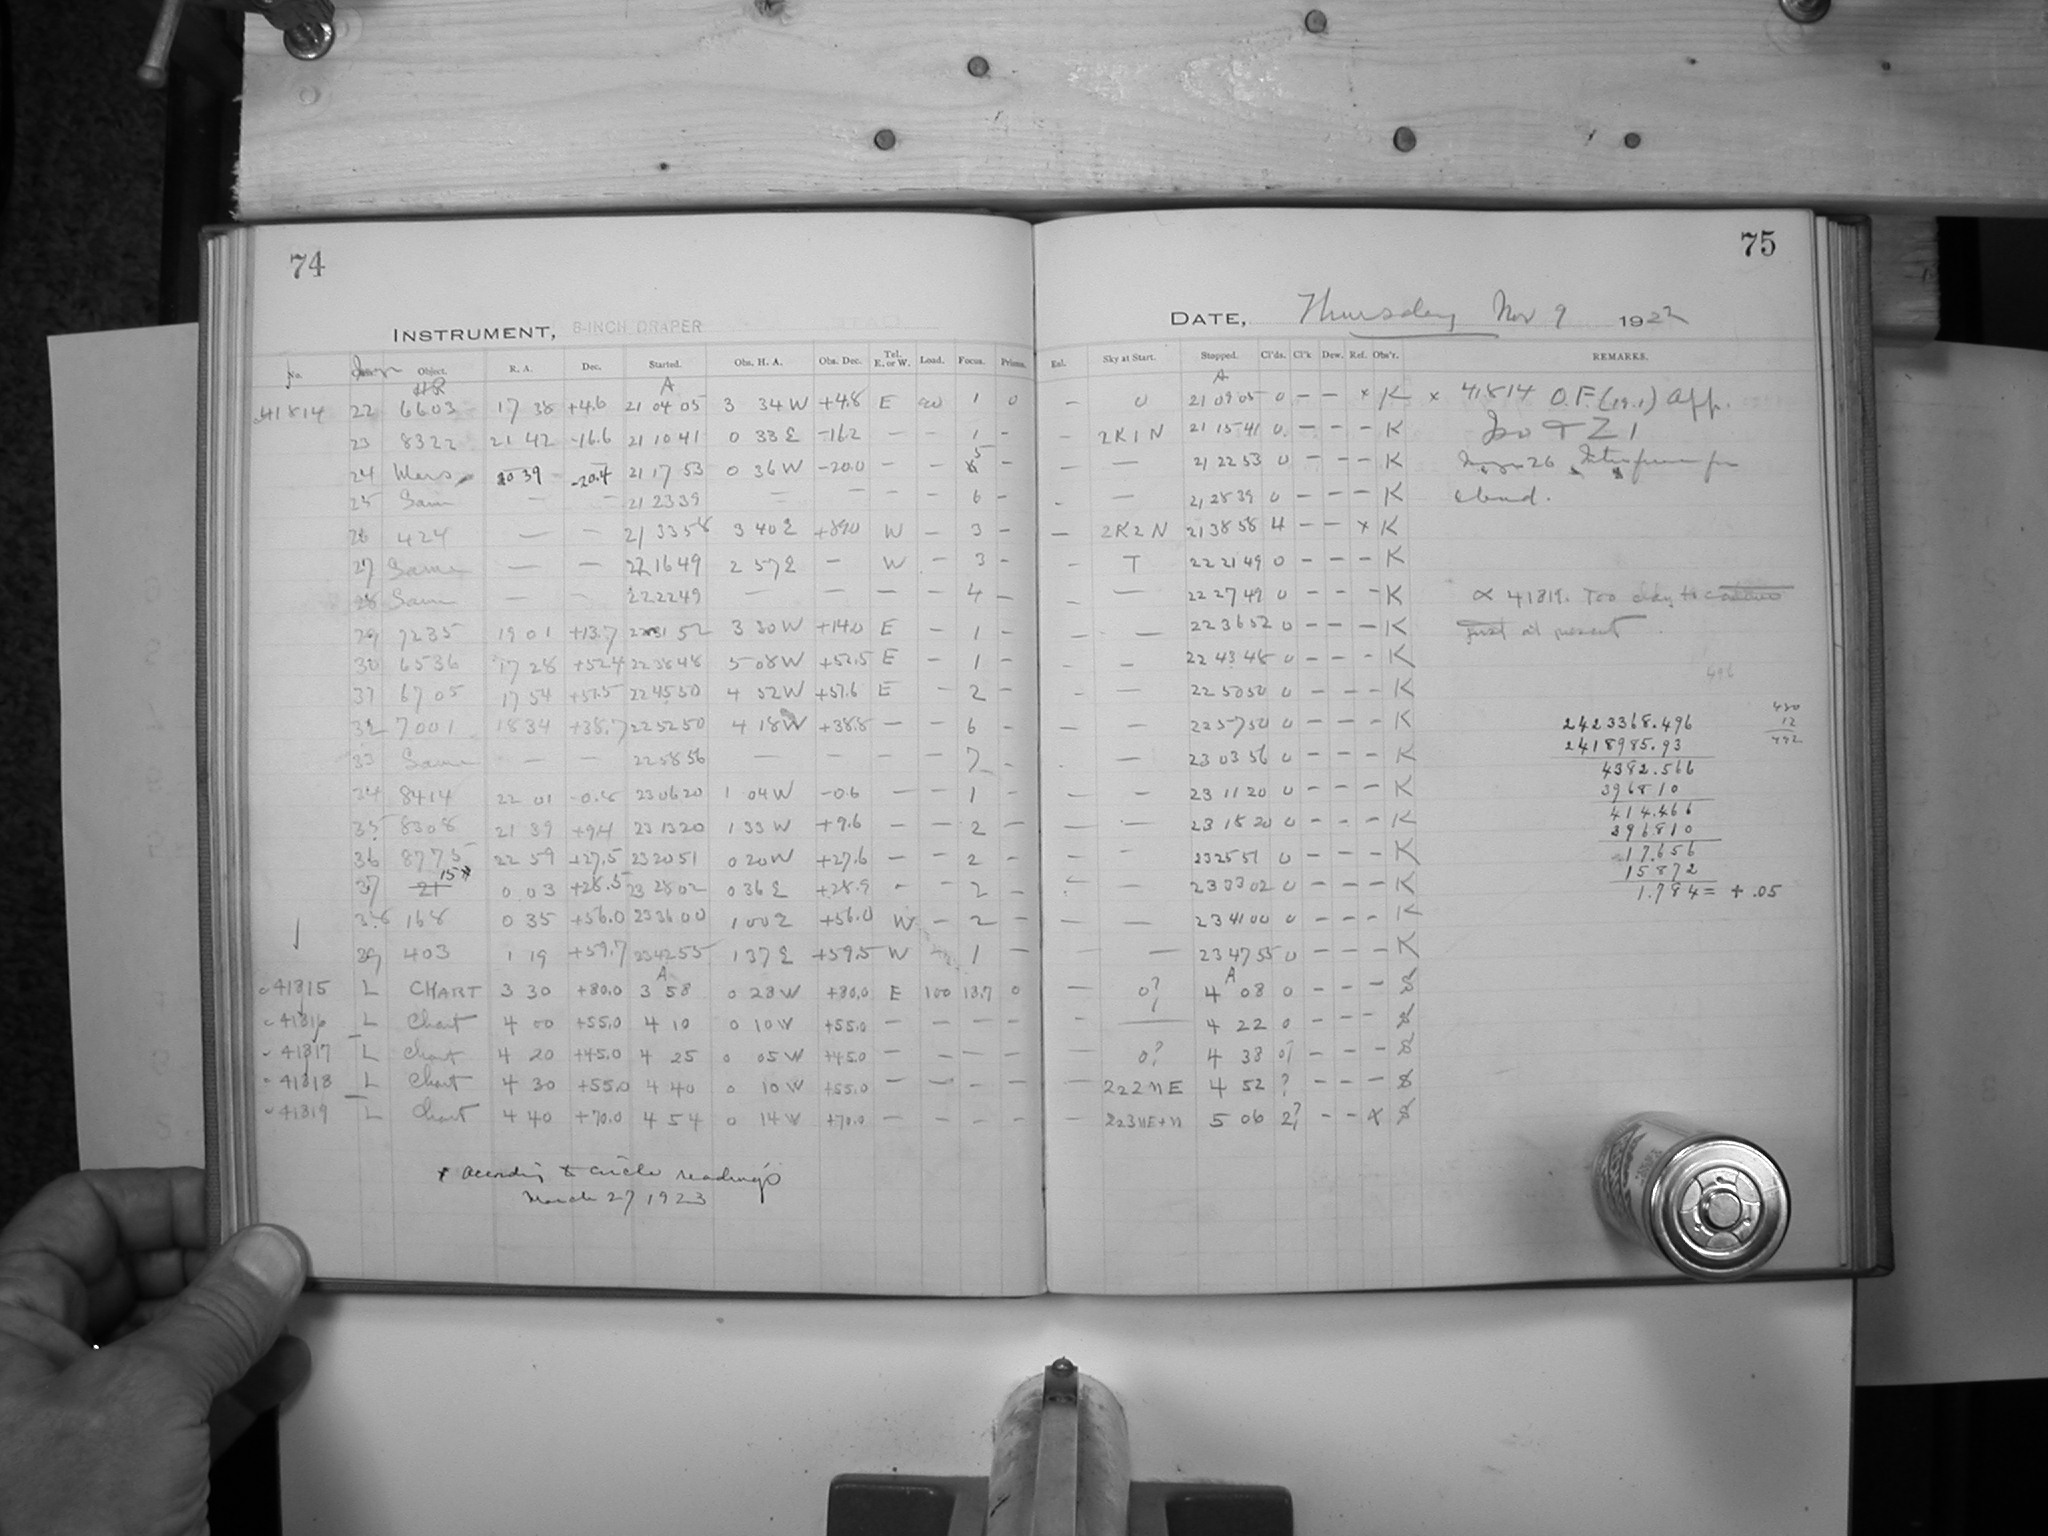 74
INSTRUMENT, 8-INCH DRAPER
No. Object. R. A. Dec. Started. Obs. H. A. Obs. Dec. Tel. E. or W. Load. Focus. Prisms.
HR A
41814 22 6603 17 38 +4.6 21 04 05 3 34 W +4.8 E 20 1 0
23 8322 21 42 -16.6 21 10 41 0 33 E -16.2 — — 1 -
24 Mars 20 39 -20.4 21 17 53 0 36 W -20.0 — — 5 -
25 Same — — 21 23 39 — — — — 6 -
26 424 — — 21 33 58 3 40 E +89.0 W — 3 -
27 Same — — 22 16 49 2 57 E — W — 3 -
28 Same — — 22 22 49 — — — — 4 -
29 7235 19 01 +13.7 22 31 52 3 30 W +14.0 E — 1 -
30 6536 17 28 +52.4 22 38 48 5 08 W +52.5 E — 1 -
31 6705 17 54 +51.5 22 45 50 4 52 W +51.6 E - 2 -
32 7001 18 34 +38.7 22 52 50 4 18 W +38.8 — - 6 -
33 Same — — 22 58 56 — — — — 7 -
34 8414 22 01 -0.8 23 06 20 1 04 W -0.6 — — 1 -
35 8308 21 39 +9.4 23 13 20 1 33 W +9.6 — — 2 —
36 8775 22 59 +27.5 23 20 51 0 20 W +27.6 — — 2 —
37 21 15* 0 03 +28.5 23 28 02 0 36 E +28.9 - - 2 —
38 168 0 35 +56.0 23 36 00 1 00 E +56.0 W — 2 —
39 403 1 19 +59.7 23 42 55 1 37 E +59.5 W — 1 —
A
41815 L CHART 3 30 +80.0 3 58 0 28 W +80.0 E 100 13.7 0
41816 L Chart 4 00 +55.0 4 10 0 10 W +55.0 — — — —
41817 L Chart 4 20 +45.0 4 25 0 05 W +45.0 — — — —
41818 L Chart 4 30 +55.0 4 40 0 10 W +55.0 — — — —
41819 L Chart 4 40 +70.0 4 54 0 14 W +70.0 — — — —
* According to circle readings
March 27 1923
75
DATE, Thursday Nov 9 1922
Exl. Sky at Start. Stopped. Cl'ds. Cl'k Dew. Ref. Obs'r. REMARKS.
A
— 0 21 09 05 0 — — × K × 41814 O.F. (19.1) App.
— 2K1N 21 15 41 0 — — - K
— — 21 22 53 0 — — - K
- — 21 28 39 0 — — — K cloud.
— 2K2N 21 38 58 4 — — × K
- T 22 21 49 0 — — — K
- — 22 27 49 0 — — - K × 41819. Too
- — 22 36 52 0 — — - K just at present
- — 22 43 48 0 — — - K
496
- — 22 50 50 0 — — - K
— — 22 57 50 0 — — - K 2423368.496 480
12
2418985.93 492
- — 23 03 56 0 — — - K 4382.566
— — 23 11 20 0 — — - K 396810
414.466
— — 23 18 20 0 — — - K 396810
- — 23 25 51 0 — — - K 17.656
15872
- — 23 33 02 0 — — - K 1.784 = + .05
— — 23 41 00 0 — — - K
— 23 47 55 0 — — - K
A
— 0? 4 08 0 — — -
- — 4 22 0 — — -
— 0? 4 38 0? — — -
— 222nE 4 52 ? — — -
— 223nE+n 5 06 2? — — ×